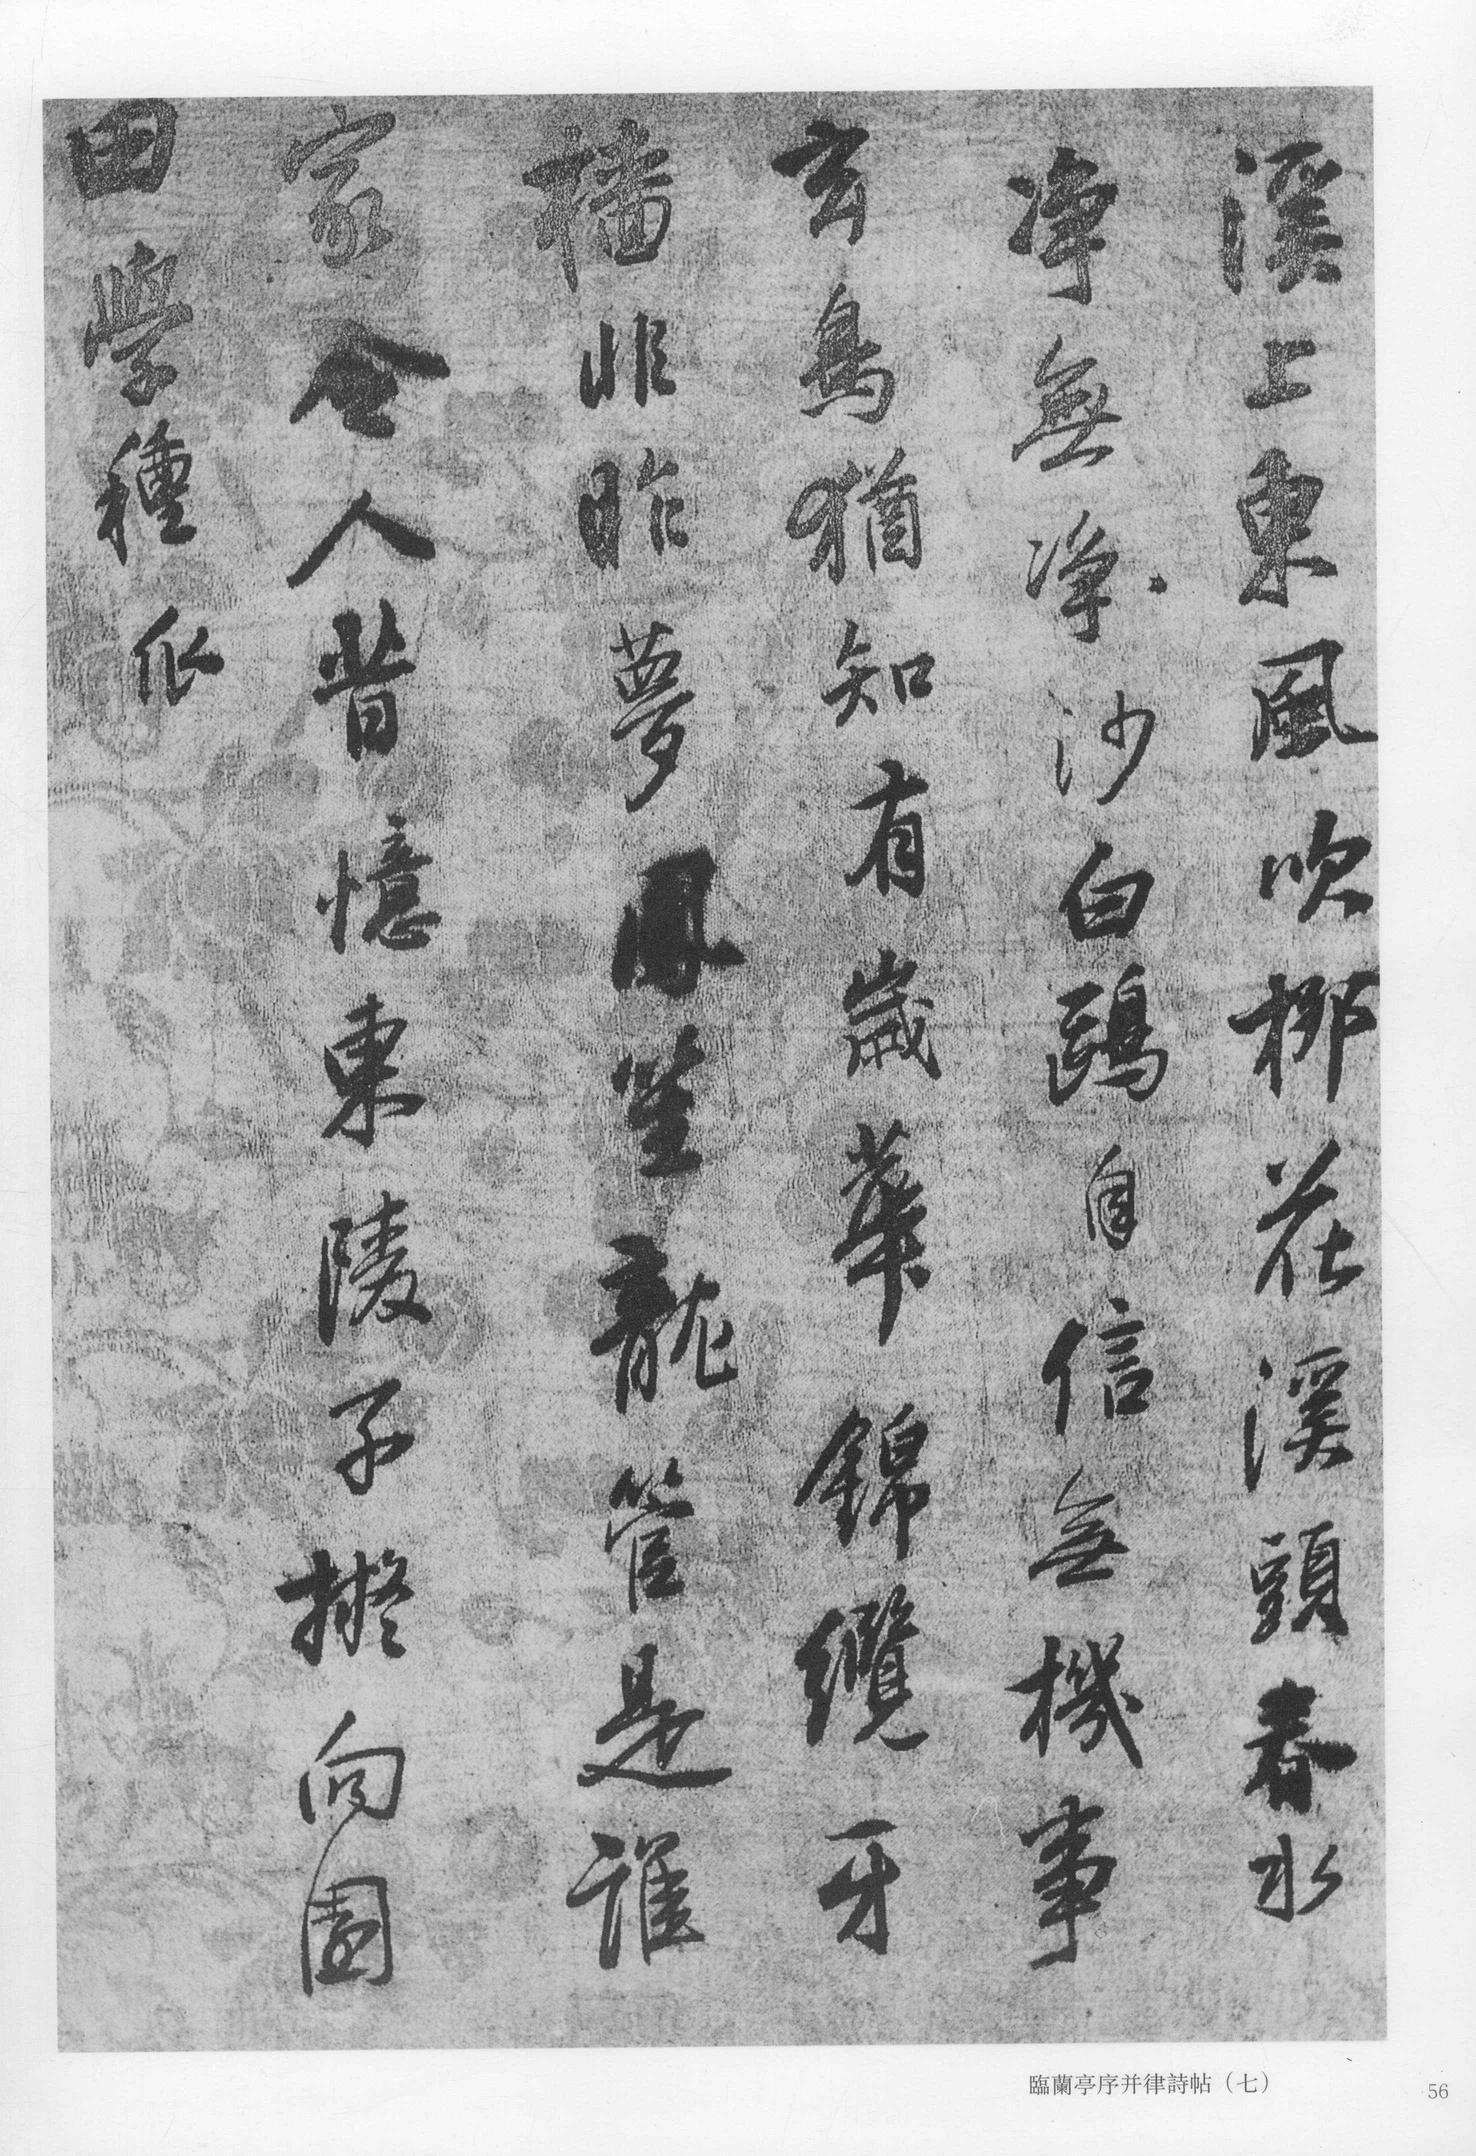 溪上東風吹柳花溪頭春水
净無净沙白鷗自信無機事
玄鳥猶知有歲華錦纜牙
檣非昨夢鳳笙龍管是誰
家令人昔憶東陵子擬向園
田學種瓜
臨蘭亭序并律詩帖（七）
56